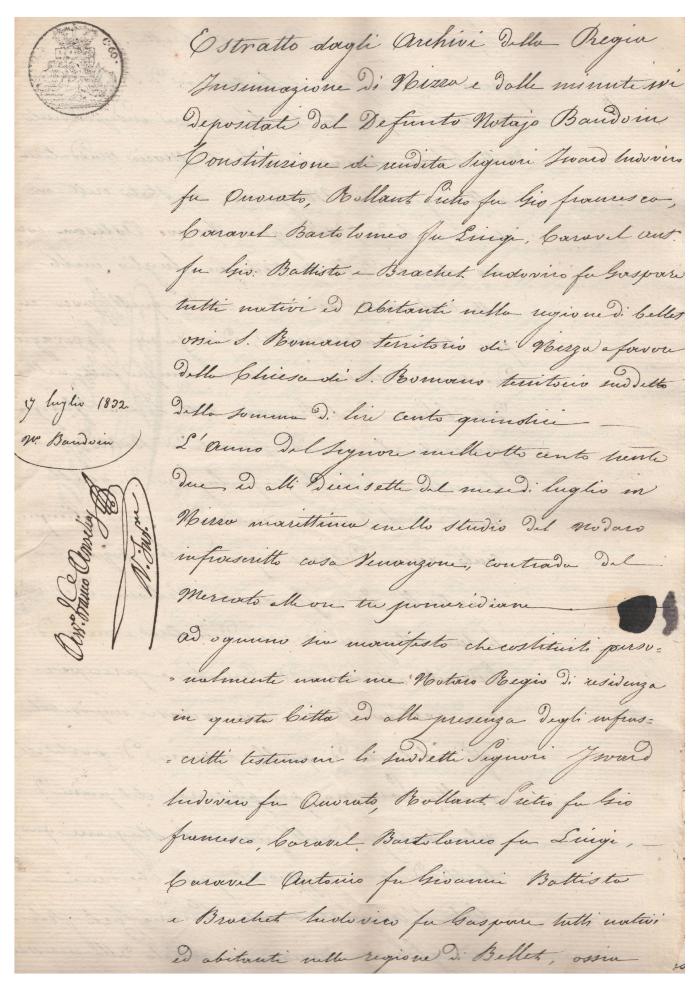 Estratto dagli Archivi della Regia
Insinuazione di Nizza e dalle minute ivi
depositate dal Defunto Notajo Baudoin
Constituzione di rendita Signori Isnard Ludovico
fu Onorato, Rollant Pietro fu Gio francesco,
Caravel Bartolomeo fu Luigi, Caravel Ant.
fu Gio. Battista e Brachet Ludovico fu Gaspare
tutti nativi ed abitanti nella regione di Bellet
ossia S. Romano territorio di Nizza a favore
della Chiesa di S. Romano territorio suddetto
della somma di lire cento quindici
7 luglio 1832
Nro. Baudoin
L'Anno del Signore mille otto cento trenta
due ed alli diecisette del mese di luglio in
Nizza marittima nello studio del nodaro
infrascritto casa Venanzone, contrada del
Mercato alle ore tre pomeridiane
ad ognuno sia manifesto che costituiti perso=
=nalmente nanti me Notaro Regio di residenza
in questa Città ed alla presenza degli infras=
=critti testimoni li suddetti Signori Isnard
Ludovico fu Onorato, Rollant Pietro fu Gio
francesco, Caravel Bartolomeo fu Luigi,
Caravel Antonio fu Gioanni Battista
e Brachet Ludovico fu Gaspare tutti nativi
ed abitanti nella regione di Bellet, ossia